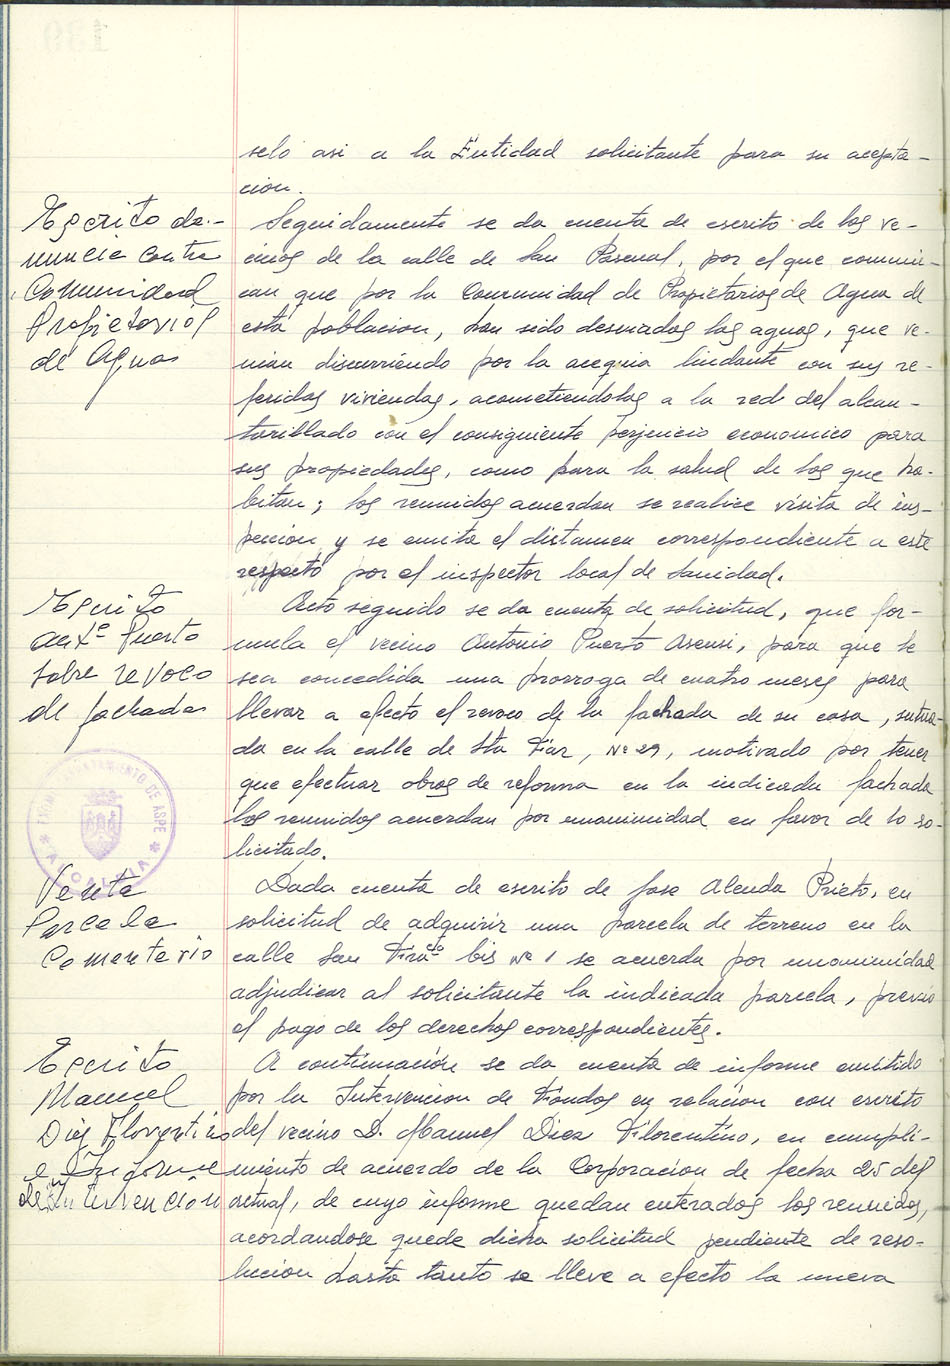 selo asi a la Entidad solicitante para su acepta-
cion.
Escrito de-
nuncia contra
Comunidad
Propietarios
de Aguas
Seguidamente se da cuenta de escrito de los ve-
cinos de la calle de San Pascual, por el que comuni-
can que por la Comunidad de Propietarios de Agua de
esta poblacion, han sido desviadas las aguas, que ve-
nian discurriendo por la acequia lindante con sus re-
feridas viviendas, acometiendolas a la red del alcan-
tarillado con el consiguiente perjuicio economico para
sus propiedades, como para la salud de los que ha-
bitan; los reunidos acuerdan se realice visita de ins-
pección y se emita el dictamen correspondiente a este
respecto por el inspector local de Sanidad.
Escrito
Antº Puerto
sobre revoco
de fachadas
Acto seguido se da cuenta de solicitud, que for-
mula el vecino Antonio Puerto Asensi, para que le
sea concedida una prorroga de cuatro meses para
llevar a efecto el revoco de la fachada de su casa, situa-
da en la calle de Sta Faz, Nº 29, motivado por tener
que efectuar obras de reforma en la indicada fachada
los reunidos acuerdan por unanimidad en favor de lo so-
licitado.
AYUNTAMIENTO DE ASPE
* ALCALDIA *
Venta
Parcela
Comenterio
Dada cuenta de escrito de Jose Alenda Prieto, en
solicitud de adquirir una parcela de terreno en la
calle San Franco bis Nº 1 se acuerda por unanimidad
adjudicar al solicitante la indicada parcela, previo
el pago de los derechos correspondientes.
Escrito
Manuel
Diez Florentino
e Informe
de Intervención
A continuación se da cuenta de informe emitido
por la Intervencion de Fondos en relación con escrito
del vecino D. Manuel Diez Florentino, en cumpli-
miento de acuerdo de la Corporacion de fecha 25 del
actual, de cuyo informe quedan enterados los reunidos,
acordandose quede dicha solicitud pendiente de reso-
lucion hasta tanto se lleve a efecto la nueva